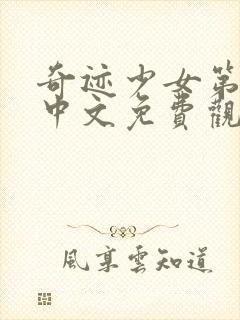 奇迹少女第
中文免費觀
風享雲知道